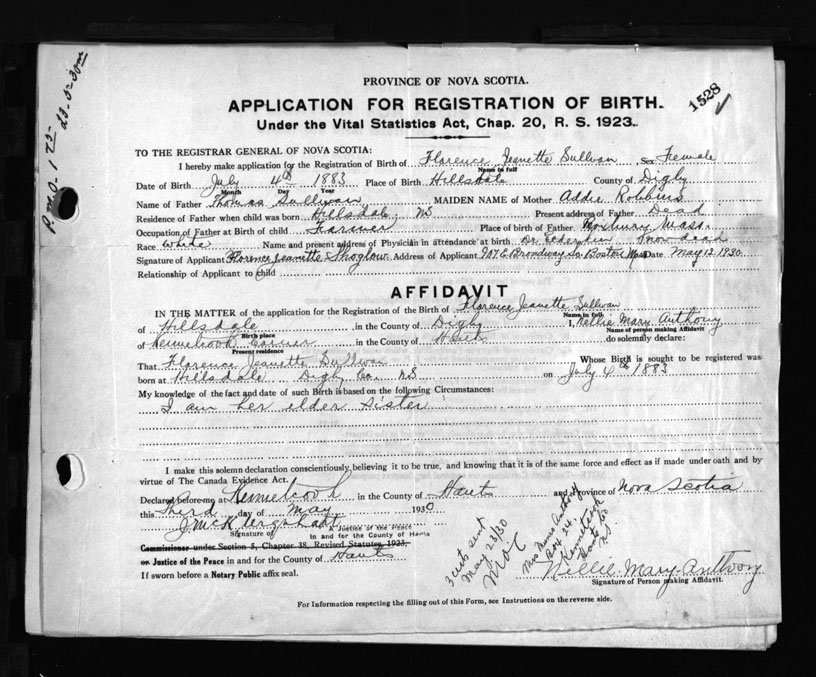 PROVINCE OF NOVA SCOTIA.
1528
APPLICATION FOR REGISTRATION OF BIRTH.
Under the Vital Statistics Act, Chap. 20, R. S. 1923.
TO THE REGISTRAR GENERAL OF NOVA SCOTIA:
I hereby make application for the Registration of Birth of Florence Jeanette Sullivan Sex Female
Name in full
Date of Birth July 4th 1883 Place of Birth Hillsdale County of Digby
Month Day Year
Name of Father Thomas Sullivan MAIDEN NAME of Mother Addie Robbins
Residence of Father when child was born Hillsdale, NS Present address of Father Dead
Occupation of Father at Birth of child Farmer Place of birth of Father Roxbury Mass.
Race White Name and present address of Physician in attendance at birth Dr. now dead
Signature of Applicant Florence Jeanette Address of Applicant 907 E. Broadway So Boston Mass Date May 12 1930.
Relationship of Applicant to Child
AFFIDAVIT
IN THE MATTER of the application for the Registration of the Birth of Florence Jeanette Sullivan
Name in full
of Hillsdale, in the County of Digby I, Nellie Mary Anthony
Birth place Name of person making Affidavit
of Kennetcook Corner in the County of Hants do solemnly declare:
Present residence
That Florence Jeanette Sullivan Whose Birth is sought to be registered was
born at Hillsdale Digby Co. NS on July 4th 1883
My knowledge of the fact and date of such Birth is based on the following Circumstances:
I am her elder sister
I make this solemn declaration conscientiously believing it to be true, and knowing that it is of the same force and effect as if made under oath and by
virtue of The Canada Evidence Act.
Declared before me at Kennetcook in the County of Hants and Province of Nova Scotia
this third day of May 1930
Signature of A Justice of the Peace
in and for the County of Hants
Commissioner under Section 5, Chapter 38, Revised Statutes, 1923,
or Justice of the Peace in and for the County of Hants
If sworn before a Notary Public affix seal.
3 certs sent
May 23/30
Mrs Anthony
Box 24
Kennetcook
Hants Co
NS
Nellie Mary Anthony
Signature of Person making Affidavit.
For Information respecting the filling out of this Form, see Instructions on the reverse side.